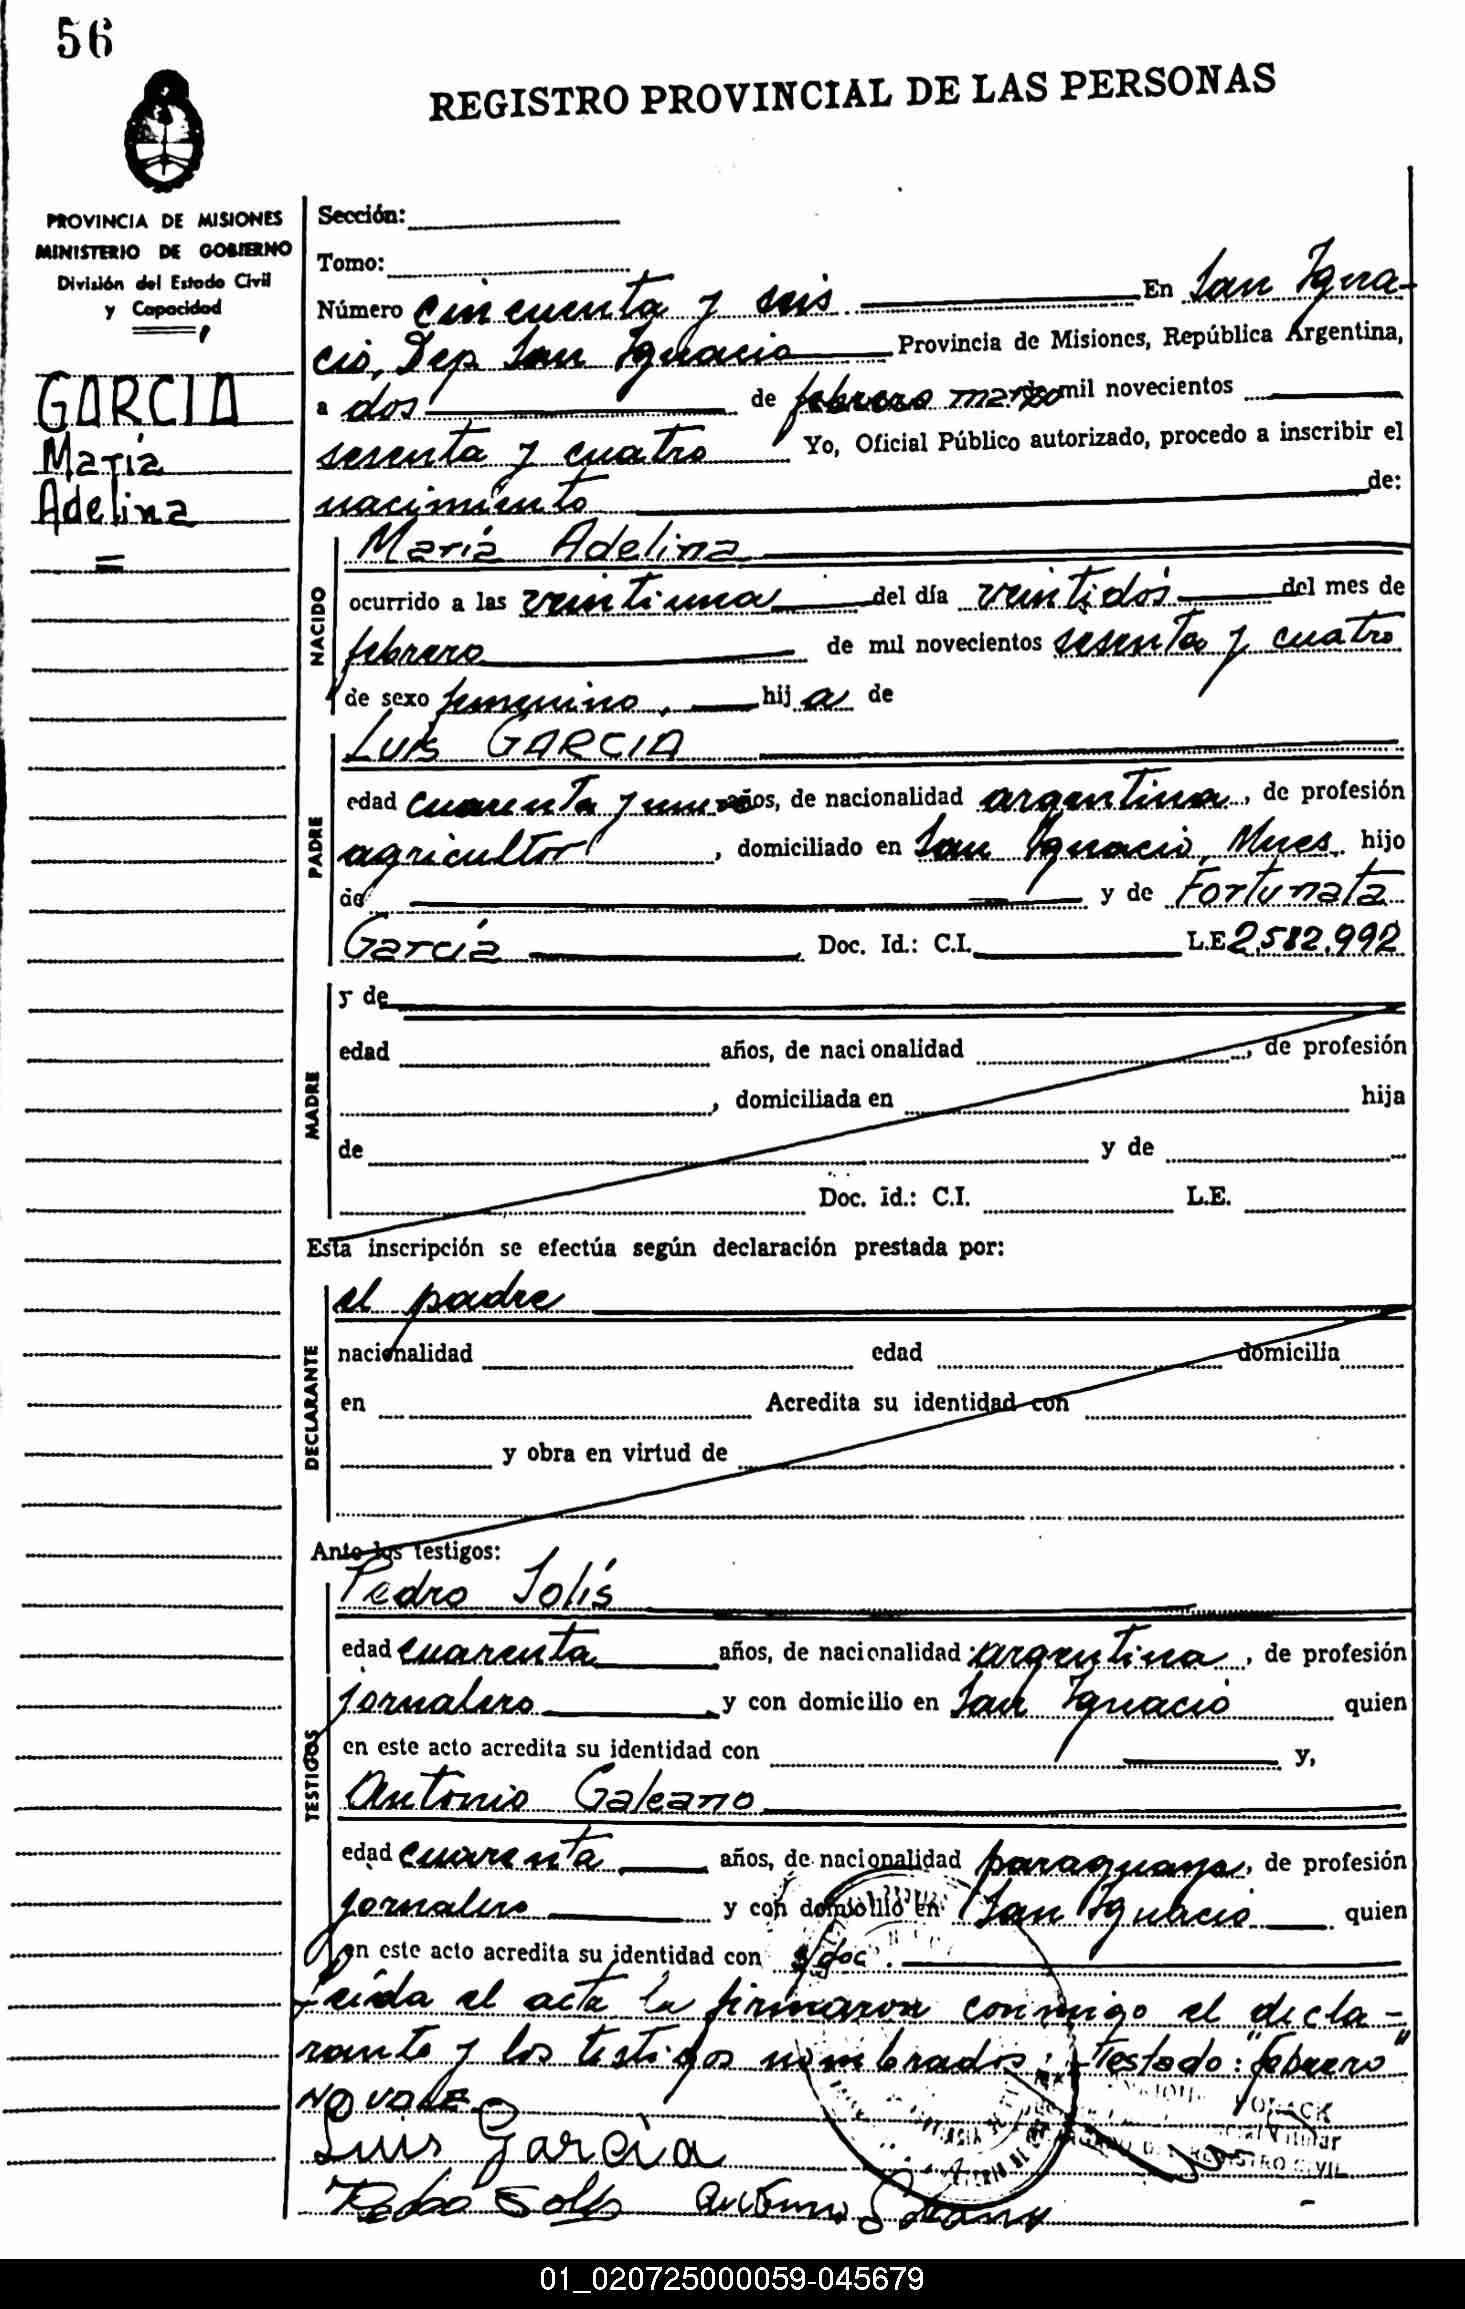 56
REGISTRO PROVINCIAL DE LAS PERSONAS
PROVINCIA DE MISIONES
MINISTERIO DE GOBIERNO
División del Estado Civil
y Capacidad
GARCIA
María
Adelina
Sección:
Tomo:
Número cincuenta y seis En San Igna-
cio, Dep. San Ignacio Provincia de Misiones, República Argentina,
a dos de febrero marzo mil novecientos
sesenta y cuatro Yo, Oficial Público autorizado, procedo a inscribir el
nacimiento de:
NACIDO
María Adelina
ocurrido a las veintiuna del día veintidós del mes de
febrero de mil novecientos sesenta y cuatro
de sexo femenino, hija de
PADRE
Luis GARCIA
edad cuarenta y uno años, de nacionalidad argentina, de profesión
agricultor, domiciliado en San Ignacio, Mnes. hijo
de y de Fortunata
García Doc. Id.: C.I. L.E 2.582.992
MADRE
y de
edad años, de nacionalidad , de profesión
, domiciliada en hija
de y de
Doc. id.: C.I. L.E.
Esta inscripción se efectúa según declaración prestada por:
DECLARANTE
el padre
nacionalidad edad domicilia
en Acredita su identidad con
y obra en virtud de
Ante los testigos:
TESTIGOS
Pedro Solís
edad cuarenta años, de nacionalidad argentina, de profesión
jornalero y con domicilio en San Ignacio quien
en este acto acredita su identidad con y,
Antonio Galeano
edad cuarenta años, de nacionalidad paraguaya, de profesión
jornalero y con domicilio en San Ignacio quien
en este acto acredita su identidad con s/doc.
Leída el acta la firmaron conmigo el decla-
rante y los testigos nombrados. Testado: "febrero"
NO VALE.
Luis Garcia
Pedro Solis Antonio
REGISTRO CIVIL
01_020725000059-045679